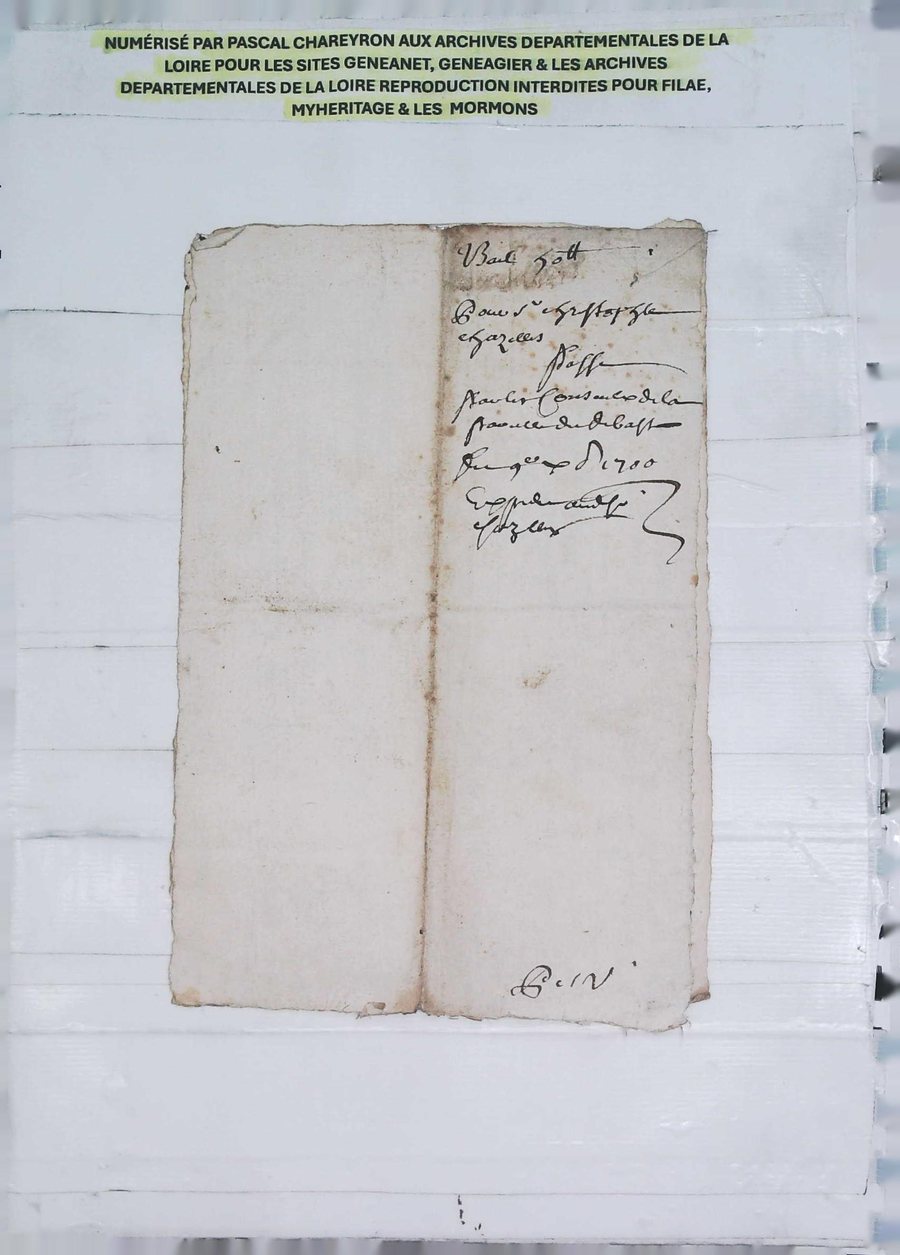 NUMÉRISÉ PAR PASCAL CHAREYRON AUX ARCHIVES DEPARTEMENTALES DE LA
LOIRE POUR LES SITES GENEANET, GENEAGIER & LES ARCHIVES
DEPARTEMENTALES DE LA LOIRE REPRODUCTION INTERDITES POUR FILAE,
MYHERITAGE & LES MORMONS
Bail 50tt
Pour Sr christophle
chazelles
Passe
Par les Conseulx de la
du debast
Du 9e xbre 1700
chazelles